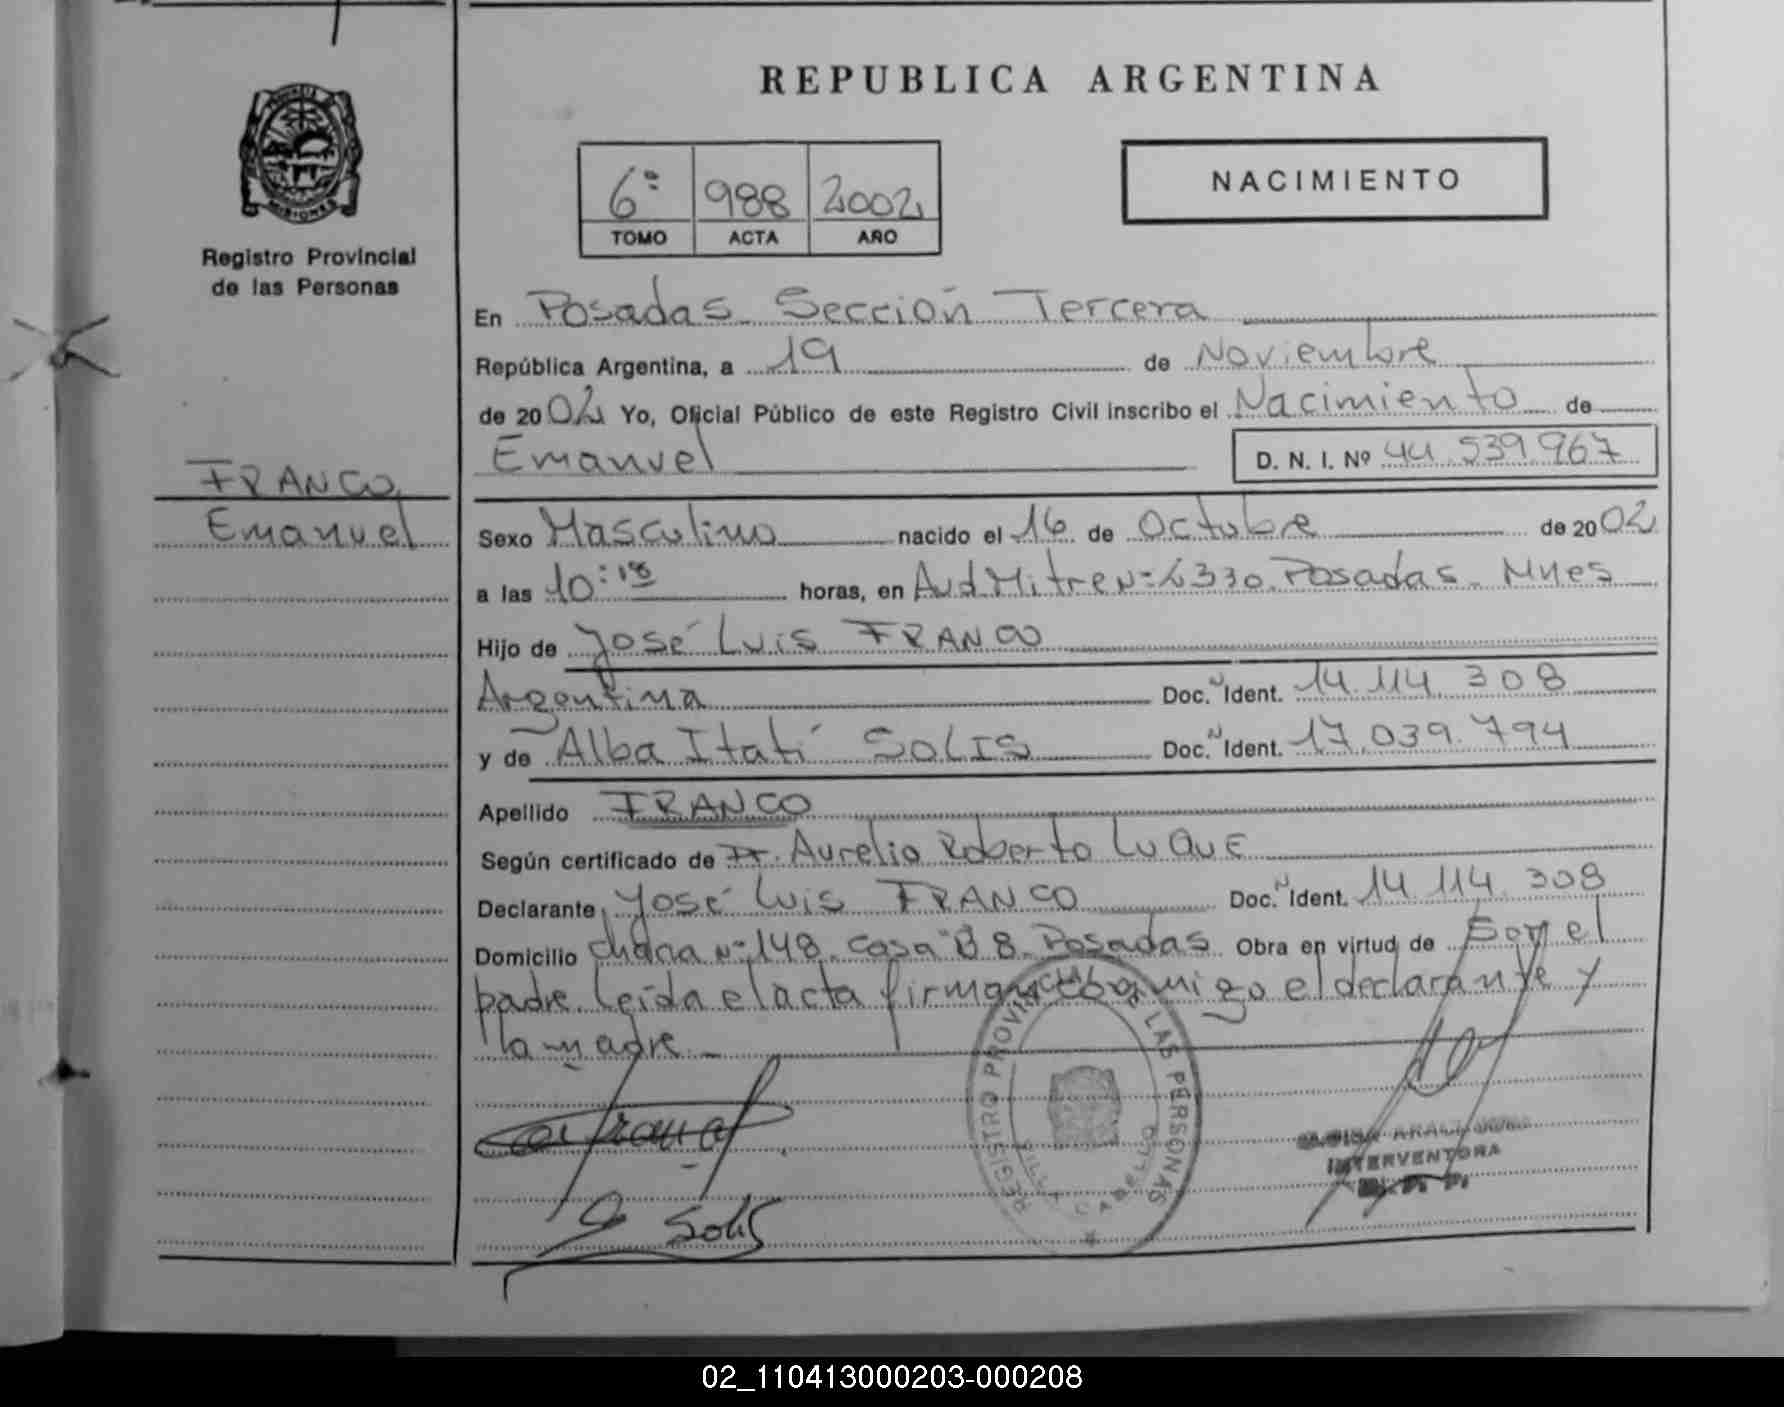 REPUBLICA ARGENTINA
6º 988 2002
TOMO ACTA AÑO
NACIMIENTO
MISIONES
Registro Provincial
de las Personas
FRANCO
Emanuel
En Posadas Sección Tercera
República Argentina, a 19 de Noviembre
de 2002 Yo, Oficial Público de este Registro Civil inscribo el Nacimiento de
Emanuel D. N. I. Nº 44 539 967
Sexo Masculino nacido el 16 de Octubre de 2002
a las 10:18 horas, en Avd Mitre Nº 2330 Posadas Mnes
Hijo de José Luis FRANCO
Argentina Doc. Ident. 14 114 308
y de Alba Itatí SOLIS Doc. Ident. 17.039.794
Apellido FRANCO
Según certificado de Dr. Aurelio Roberto LUQUE
Declarante José Luis FRANCO Doc. Ident. 14 114 308
Domicilio chacra Nº 148 casa 8 Posadas Obra en virtud de Ser el
padre Leída el acta firman conmigo el declarante y
la madre
REGISTRO PROVINCIAL DE LAS PERSONAS
VILLA CABELLO
Solis
INTERVENTORA
02_110413000203-000208